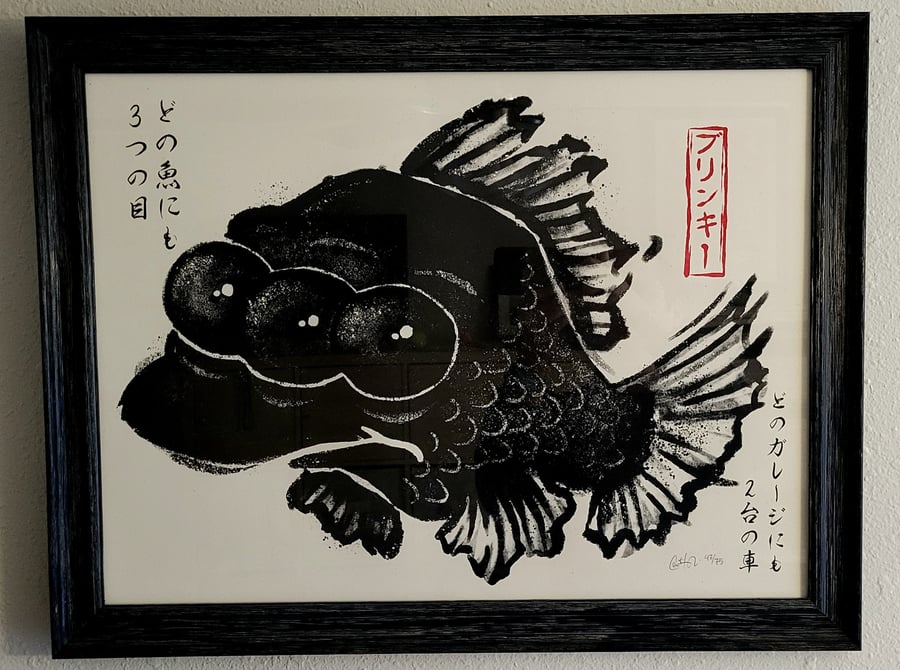 ブリンキー
どの魚にも
3つの目
どのガレージにも
2台の車
47/75